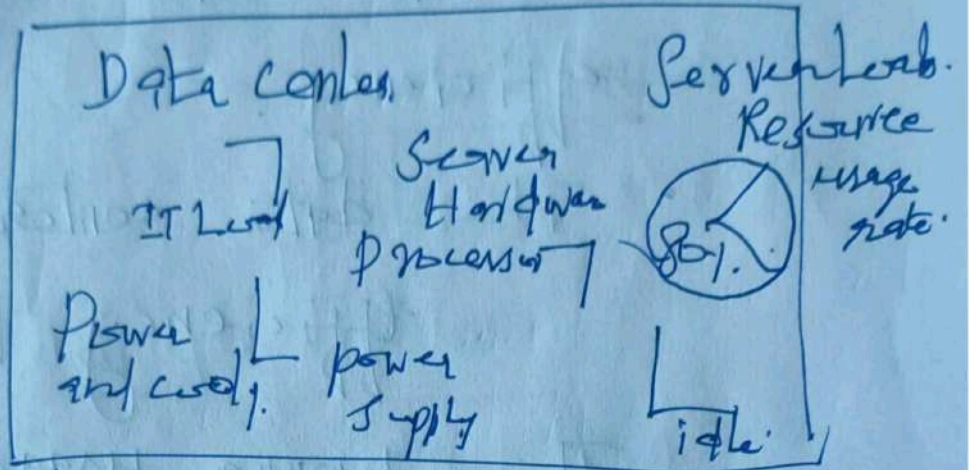 Data Center
Server Load.
Resource
usage
rate.
IT Load
Server
Hardware
Processor
80%.
Power
and cooly.
power
supply
idle.